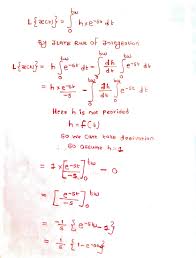 L{x(t)} = ∫₀^tw h x e^-st dt
By ILATE Rule of Integration
L{x(t)} = h ∫₀^tw e^-st dt - ∫₀^tw dh/dt ∫₀^tw e^-st dt
= h e^-st/-s - ∫₀^tw dh/dt ∫₀^tw e^-st
Here h is not provided
h = f(t)
So we can't take derivation
So assume h = 1
= 1 × [e^-st/-s]₀^tw - 0
= [e^-st/-s]₀^tw
= -1/s {e^-stw - 1}
= 1/s {1 - e^-stw}